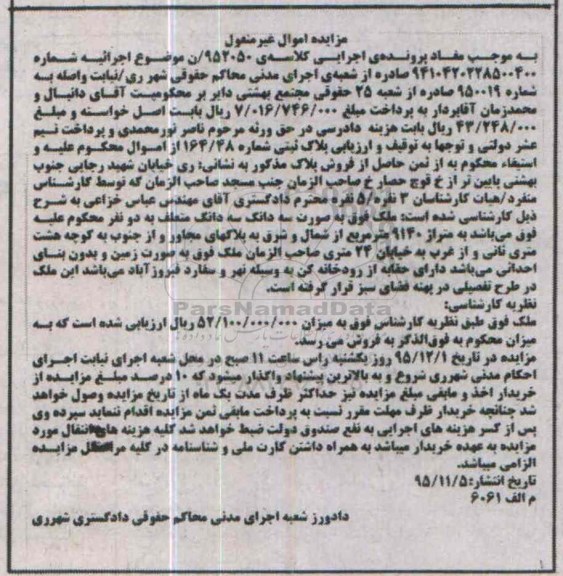 مزایده اموال غیرمنقول
به موجب مفاد پرونده‌ی اجرایی کلاسه‌ی ۹۵۲۰۵۰/ن موضوع اجرائیه شماره
۹۴۱۰۴۲۰۲۲۸۵۰۰۴۰۰ صادره از شعبه‌ی اجرای مدنی محاکم حقوقی شهر ری/نیابت واصله به
شماره ۹۵۰۰۱۹ صادره از شعبه ۲۵ حقوقی مجتمع بهشتی دایر بر محکومیت آقای دانیال و
محمدزمان آقابردار به پرداخت مبلغ ۷/۰۱۶/۷۴۶/۰۰۰ ریال بابت اصل خواسته و مبلغ
۴۳/۲۴۸/۰۰۰ ریال بابت هزینه دادرسی در حق ورثه مرحوم ناصر نورمحمدی و پرداخت نیم
عشر دولتی و توجها به توقیف و ارزیابی پلاک ثبتی شماره ۱۶۴/۴۸ از اموال محکوم علیه و
استیفاء محکوم به از ثمن حاصل از فروش پلاک مذکور به نشانی: ری خیابان شهید رجایی جنوب
بهشتی پایین تر از خ قوچ حصار خ صاحب الزمان جنب مسجد صاحب الزمان که توسط کارشناس
منفرد/هیات کارشناسان ۳ نفره/۵ نفره محترم دادگستری آقای مهندس عباس خزاعی به شرح
ذیل کارشناسی شده است: ملک فوق به صورت سه دانگ سه دانگ متعلف به دو نفر محکوم علیه
فوق می‌باشد به متراژ ۹۱۴۰ مترمربع از شمال و شرق به پلاکهای مجاور و از جنوب به کوچه هشت
متری ثانی و از غرب به خیابان ۲۴ متری صاحب الزمان ملک فوق به صورت زمین و بدون بنای
احداثی می‌باشد دارای حقابه از رودخانه کن به وسیله نهر و سفارد فیروزآباد می‌باشد این ملک
در طرح تفصیلی در پهنه فضای سبز قرار گرفته است.
ParsNamadData
نظریه کارشناسی:
ملک فوق طبق نظریه کارشناس فوق به میزان ۵۲/۱۰۰/۰۰۰/۰۰۰ ریال ارزیابی شده است که به
میزان محکوم به فوق‌الذکر به فروش می رسد.
مزایده در تاریخ ۹۵/۱۲/۱ روز یکشنبه راس ساعت ۱۱ صبح در محل شعبه اجرای نیابت اجرای
احکام مدنی شهرری شروع و به بالاترین پیشنهاد واگذار میشود که ۱۰ درصد مبلغ مزایده از
خریدار اخذ و مابقی مبلغ مزایده نیز حداکثر ظرف مدت یک ماه از تاریخ مزایده وصول خواهد
شد چنانچه خریدار ظرف مهلت مقرر نسبت به پرداخت مابقی ثمن مزایده اقدام ننماید سپرده وی
پس از کسر هزینه های اجرایی به نفع صندوق دولت ضبط خواهد شد کلیه هزینه های انتقال مورد
مزایده به عهده خریدار میباشد به همراه داشتن کارت ملی و شناسنامه در کلیه مراحل مزایده
الزامی میباشد.
تاریخ انتشار: ۹۵/۱۱/۵
م الف ۶۰۶۱
دادورز شعبه اجرای مدنی محاکم حقوقی دادگستری شهرری